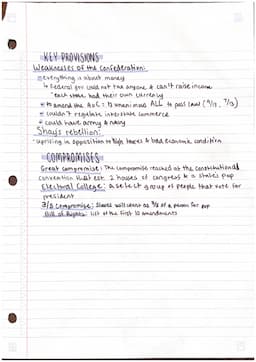 KEY PROVISIONS
Weaknesses of the Confederation:
everything is about money
Federal gov could not tax anyone & can't raise income
each state had their own currency
to amend the AoC: is unanimous ALL to pass law (9/13, 7/13)
couldn't regulate interstate commerce
could have army & navy
Shays rebellion:
uprising in opposition to high taxes & bad economic condition
COMPROMISES
Great compromise: The compromise reached at the constitutional
convention that est. 2 houses of congress & a state's pop
Electoral College: a select group of people that vote for
president
3/5 compromise: Slaves will count as 3/5 of a person for pop
Bill of Rights: list of the first 10 amendments